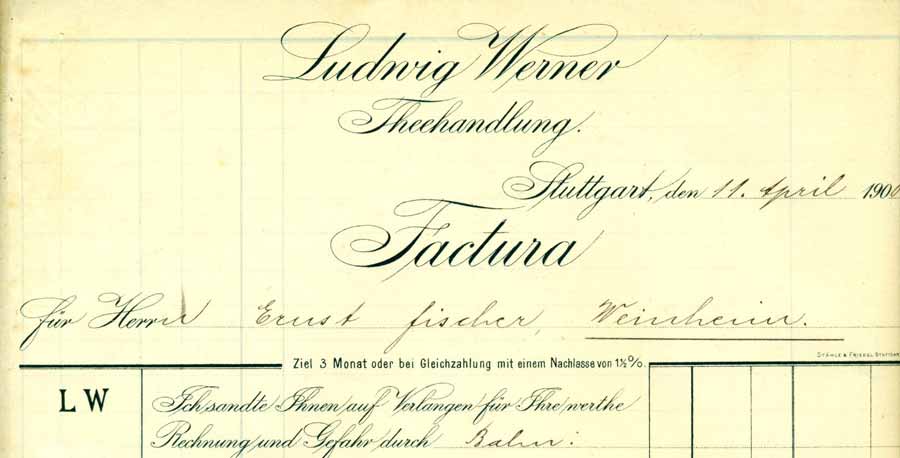 Ludwig Werner
Theehandlung.
Stuttgart, den 11. April 190
Factura
für Herrn Ernst Fischer, Weinheim.
STÄHLE & FRIEDEL STUTTGART
Ziel 3 Monat oder bei Gleichzahlung mit einem Nachlasse von 1½%.
LW
Ich sandte Ihnen auf Verlangen für Ihre werthe
Rechnung und Gefahr durch Bahn: